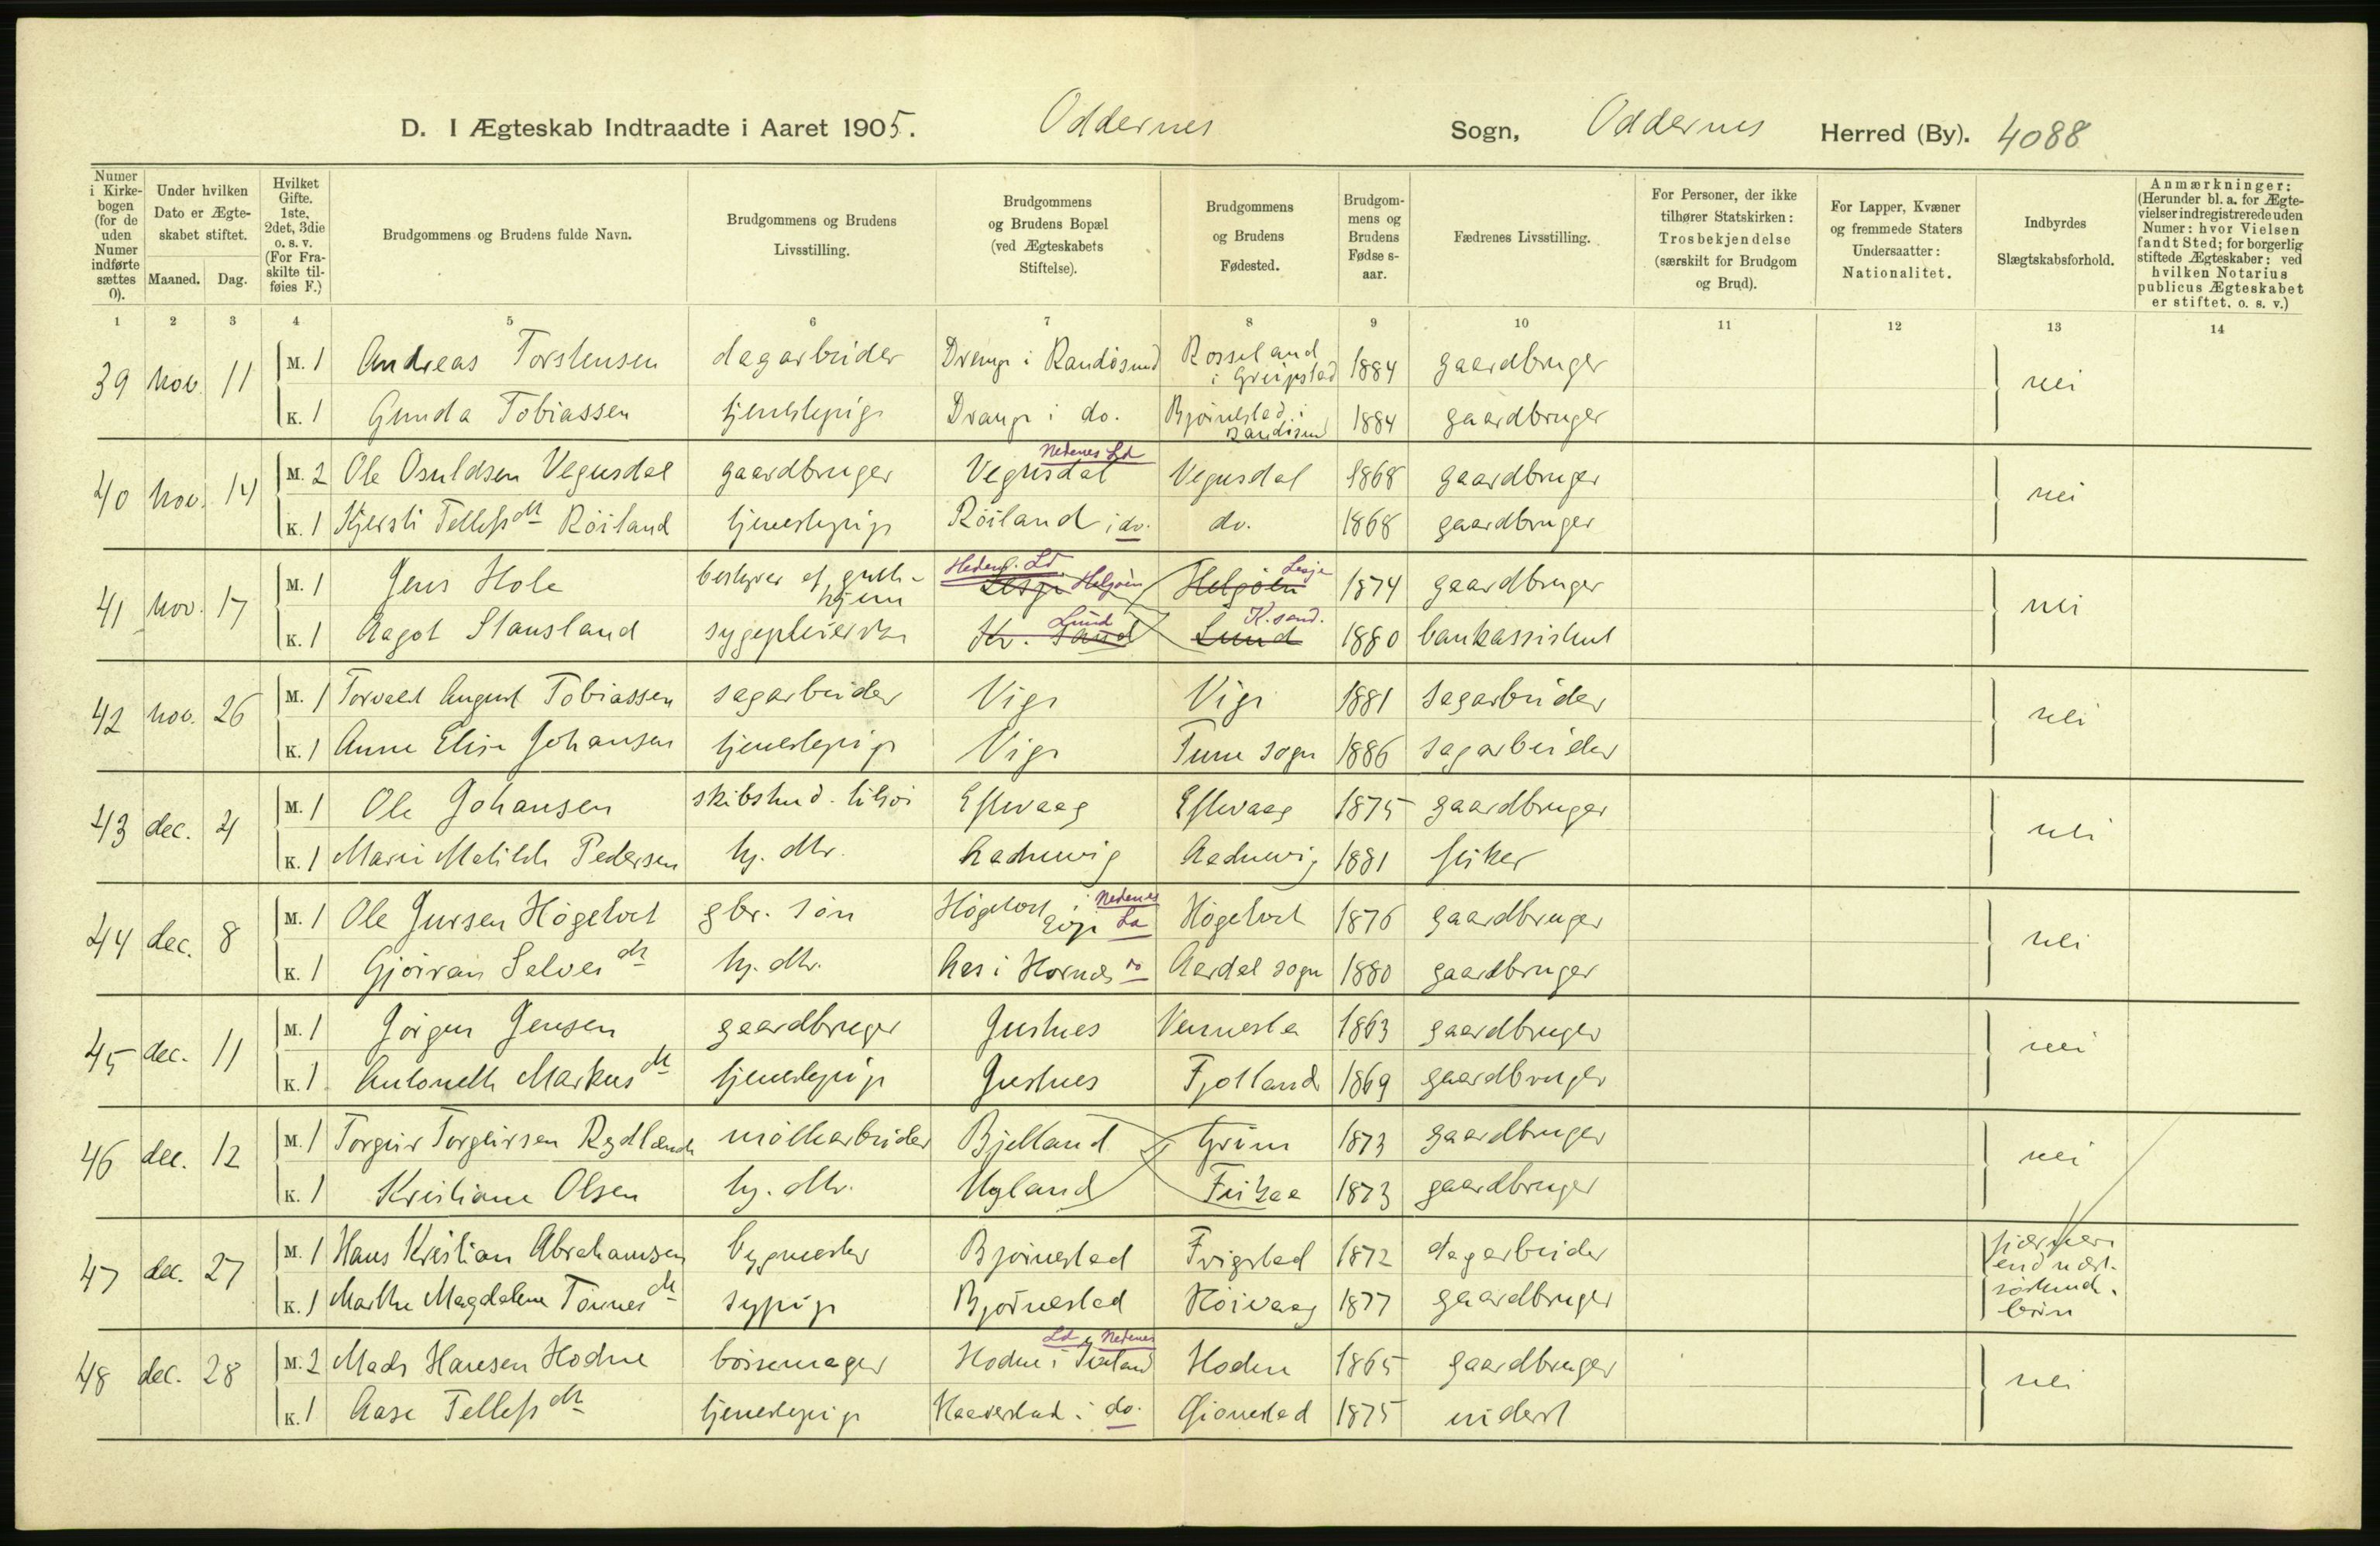 D. I Ægteskab Indtraadte i Aaret 1905. Oddernes Sogn, Oddernes Herred (By). 4088
Numer i Kirkebogen (for de uden Numer indførte sættes 0).
Under hvilken Dato er Ægteskabet stiftet.
Maaned. Dag.
Hvilket Gifte. 1ste, 2det, 3die o. s. v. (For Fraskilte tilføies F.)
Brudgommens og Brudens fulde Navn.
Brudgommens og Brudens Livsstilling.
Brudgommens og Brudens Bopæl (ved Ægteskabets Stiftelse).
Brudgommens og Brudens Fødested.
Brudgommens og Brudens Fødselsaar.
Fædrenes Livsstilling.
For Personer, der ikke tilhører Statskirken: Trosbekjendelse (særskilt for Brudgom og Brud).
For Lapper, Kvæner og fremmede Staters Undersaatter: Nationalitet.
Indbyrdes Slægtskabsforhold.
Anmærkninger: (Herunder bl. a. for Ægtevielser indregistrerede uden Numer: hvor Vielsen fandt Sted; for borgerlig stiftede Ægteskaber: ved hvilken Notarius publicus Ægteskabet er stiftet. o. s. v.)
1 2 3 4 5 6 7 8 9 10 11 12 13 14
39 nov. 11 M. 1 Andreas Torstensen dagarbeider i Randøsund Rosseland i Greipstad 1884 gaardbruger nei
K. 1 Gunda Tobiassen tjenestepige i do. Bjørnestad i Randøsund 1884 gaardbruger
40 nov. 14 M. 2 Ole Osuldsen Vegusdal gaardbruger Vegusdal Nedenes Ld Vegusdal 1868 gaardbruger nei
K. 1 Kjersti Tellefsdtr Røiland tjenestepige Røiland i do. do. 1868 gaardbruger
41 nov. 17 M. 1 Jens Hole bestyrer af guttehjem Hedem. Ld. Lesje Helgøen Helgøen Lesje 1874 gaardbruger nei
K. 1 Aagot Stausland sygepleierske Kr. sand Lund Lund K.sand. 1880 bankassistent
42 nov. 26 M. 1 Torvald August Tobiassen sagarbeider Vige Vige 1881 sagarbeider nei
K. 1 Anne Elise Johansen tjenestepige Vige Tune sogn 1886 sagarbeider
43 dec. 4 M. 1 Ole Johansen Eftevaag Eftevaag 1875 gaardbruger nei
K. 1 Marie Matilde Pedersen hj. dtr. 1881 fisker
44 dec. 8 M. 1 Ole Jursen Høgetvet gbr. søn Høgetvet i Evje Nedenes Ld Høgetvet 1876 gaardbruger nei
K. 1 Gjøran Selvesdtr hj. dtr. Aas i Hornes do Aardal sogn 1880 gaardbruger
45 dec. 11 M. 1 Jørgen Jensen gaardbruger Justnes Vennesla 1863 gaardbruger nei
K. 1 Antonette Markusdtr tjenestepige Justnes Fjotland 1869 gaardbruger
46 dec. 12 M. 1 Torgeir Torgeirsen Rydlende møllearbeider Bjelland Grim 1873 gaardbruger nei
K. 1 Kristiane Olsen hj. dtr. Øyland 1873 gaardbruger
47 dec. 27 M. 1 Hans Kristian Abrahamsen bygmester Bjørnestad Frigstad 1872 dagarbeider fjærnere end næstsødskendebørn
K. 1 Marthe Magdalene Tønnesdtr sypige Bjørnestad Høivaag 1877 gaardbruger
48 dec. 28 M. 2 Mads Hansen Hodne bøssemager Hodne i Iveland Nedenes Ld Hodne 1865 gaardbruger nei
K. 1 Aase Tellefsdtr tjenestepige i do. 1875 inderst